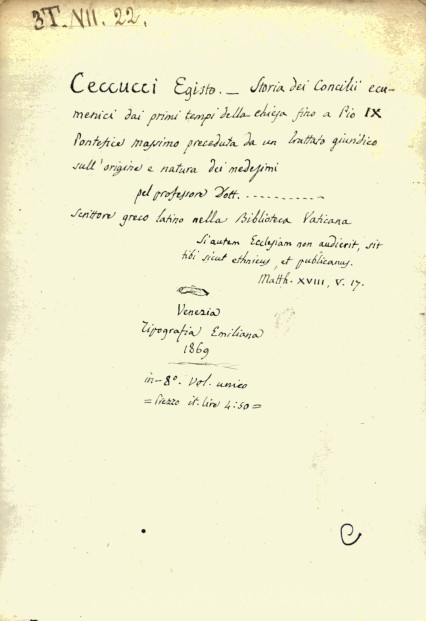 3T. VII. 22.
Ceccucci Egisto. — Storia dei Concilii ecu-
menici dai primi tempi della chiesa fino a Pio IX
Pontefice massimo preceduta da un trattato giuridico
sull'origine e natura dei medesimi
pel professore Dott. ............
Scrittore greco latino nella Biblioteca Vaticana
Si autem Ecclesiam non audierit, sit
tibi sicut ethnicus, et publicanus.
Matth. XVIII, V. 17.
Venezia
Tipografia Emiliana
1869
in-8°. Vol. unico
= Prezzo it. lire 4:50 =
C